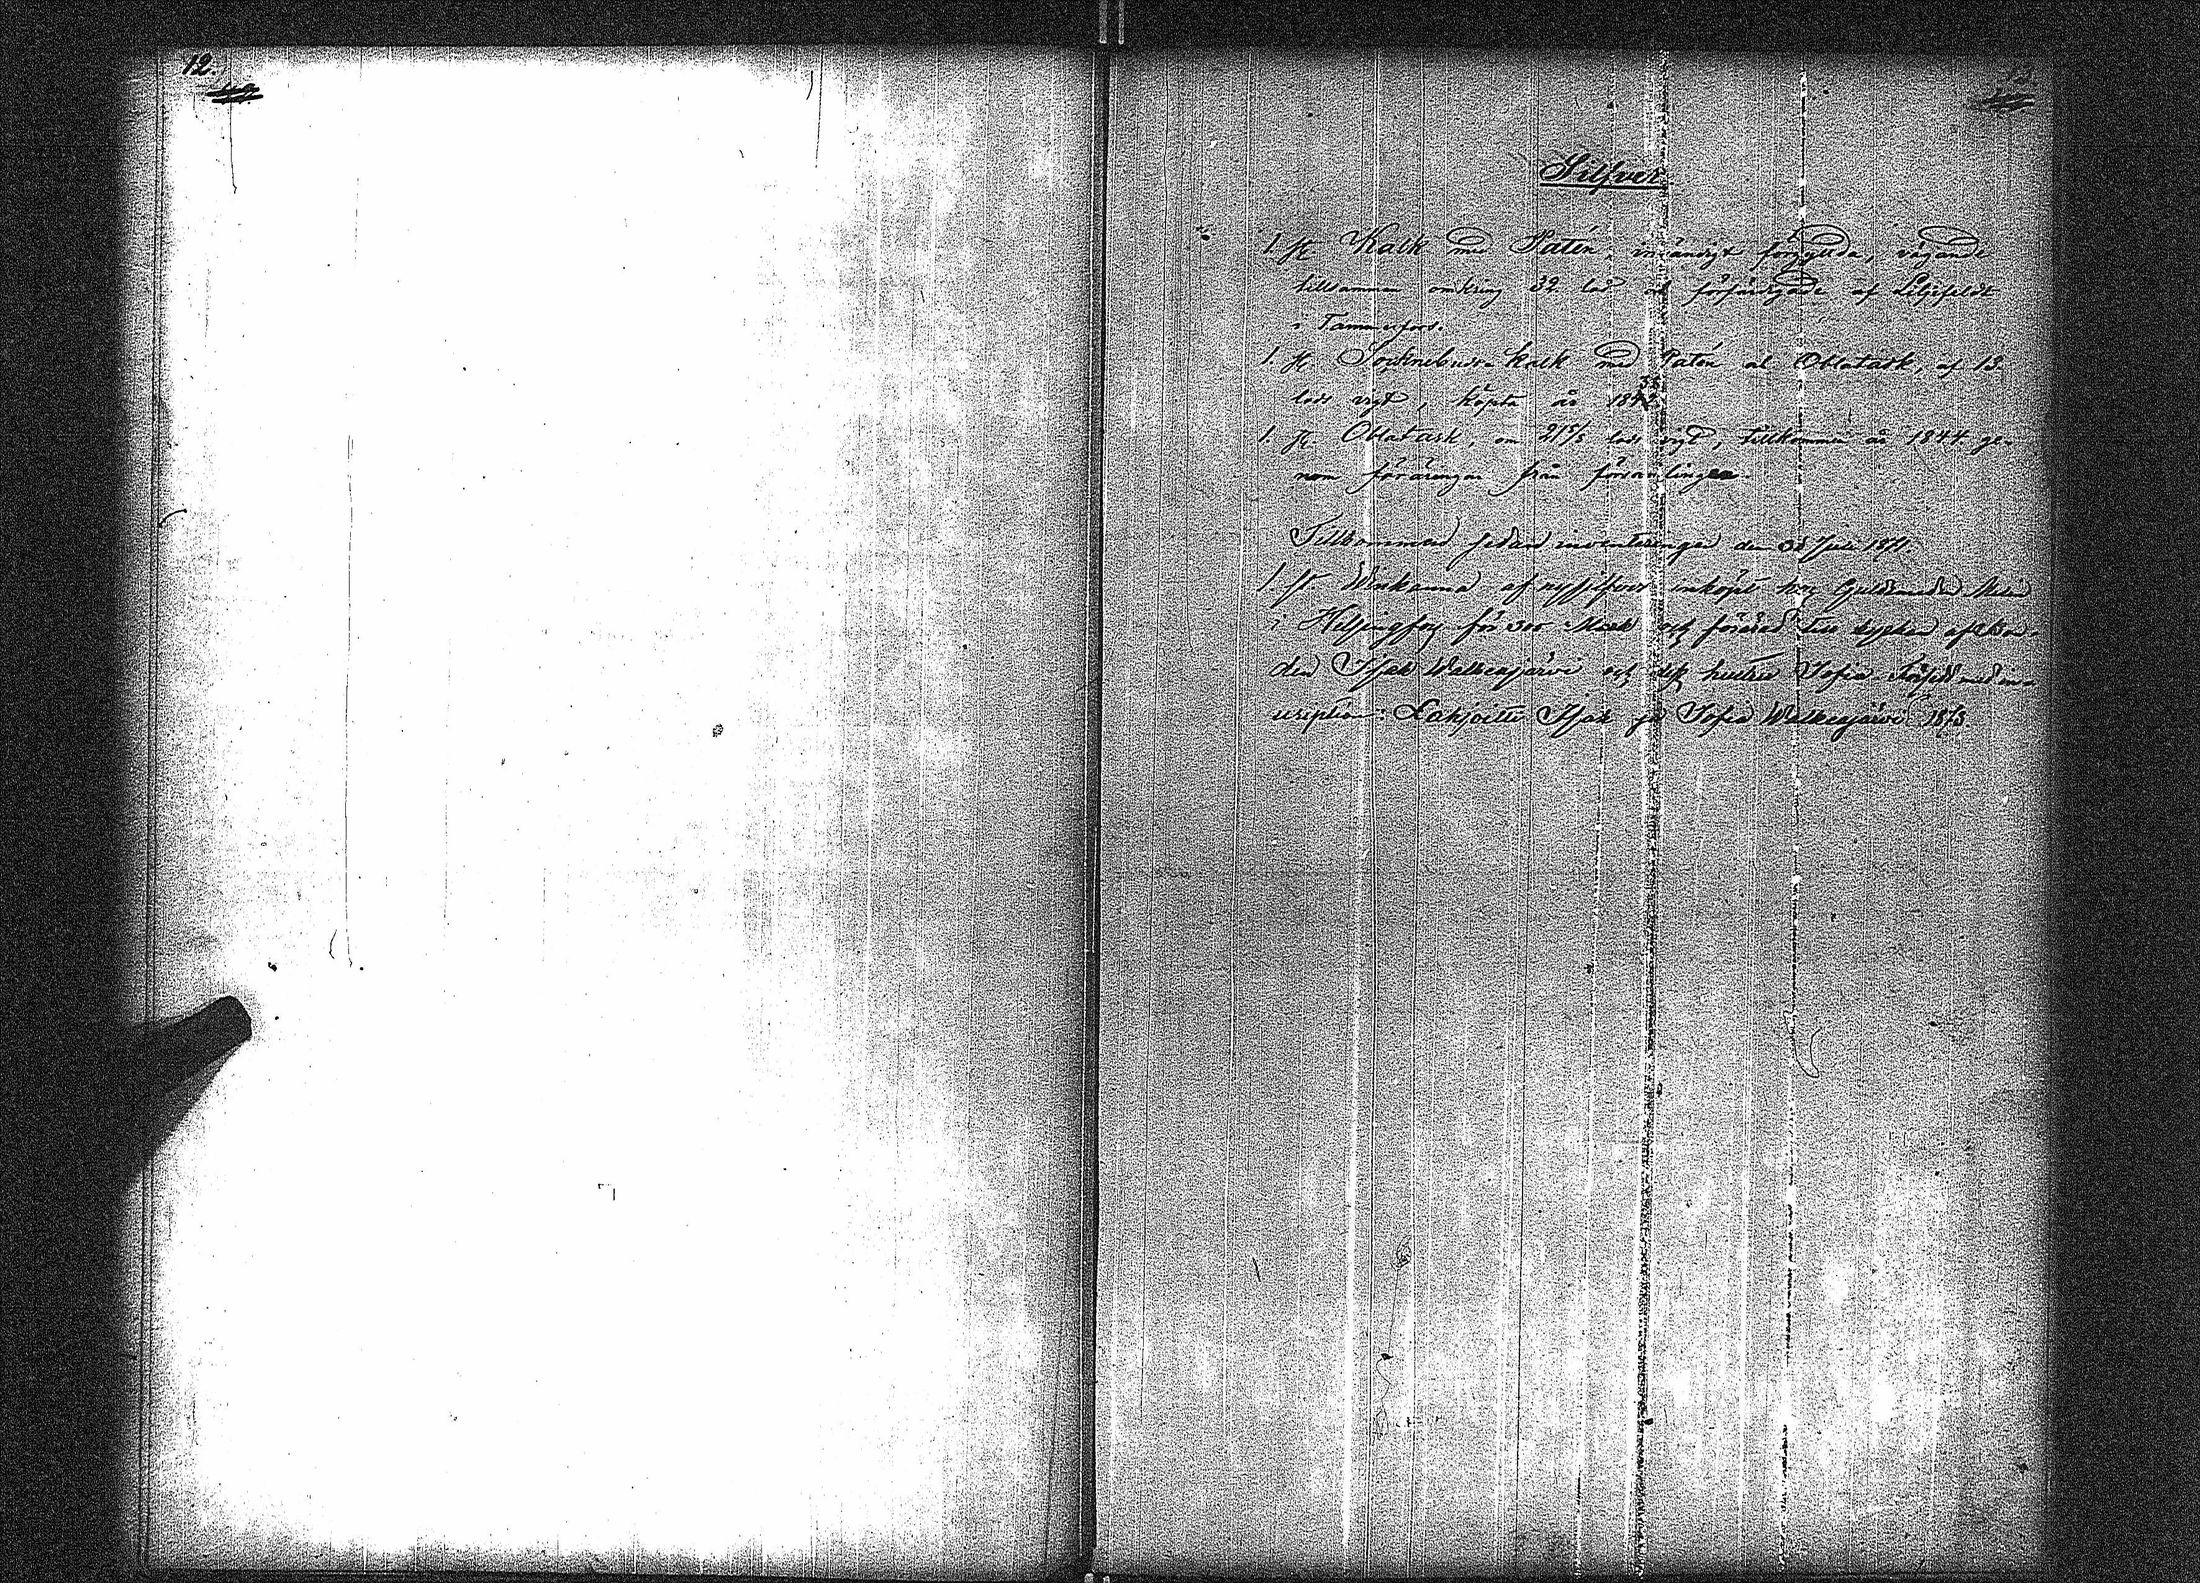 12.
Silfver
1. st Kalk med Patén, invändigt förgyllda, vägande
tillsamman omkring 32 lod och förfärdigade af Liljefeldt
i Tammerfors.
1. st Socknebuds-kalk med Patén och Oblatask, af 13
lods vigt, köpta år 1838
1. st Oblatask, om 21 5/8 lods vigt, tillkommen år 1844 ge-
nom föräringar från församlingen.
Tillkommen sedan inventeringen den Juli 1871.
1. st. Vinkanna af nysilfver inköpt hos Guldsmeden
i Helsingfors för 300 Mark och förärad till kyrkan af
den Isak Walkeajärvi och dess hustru Sofia med in-
scription: Lahjoitti Isak ja Sofia Walkeajärvi 1873